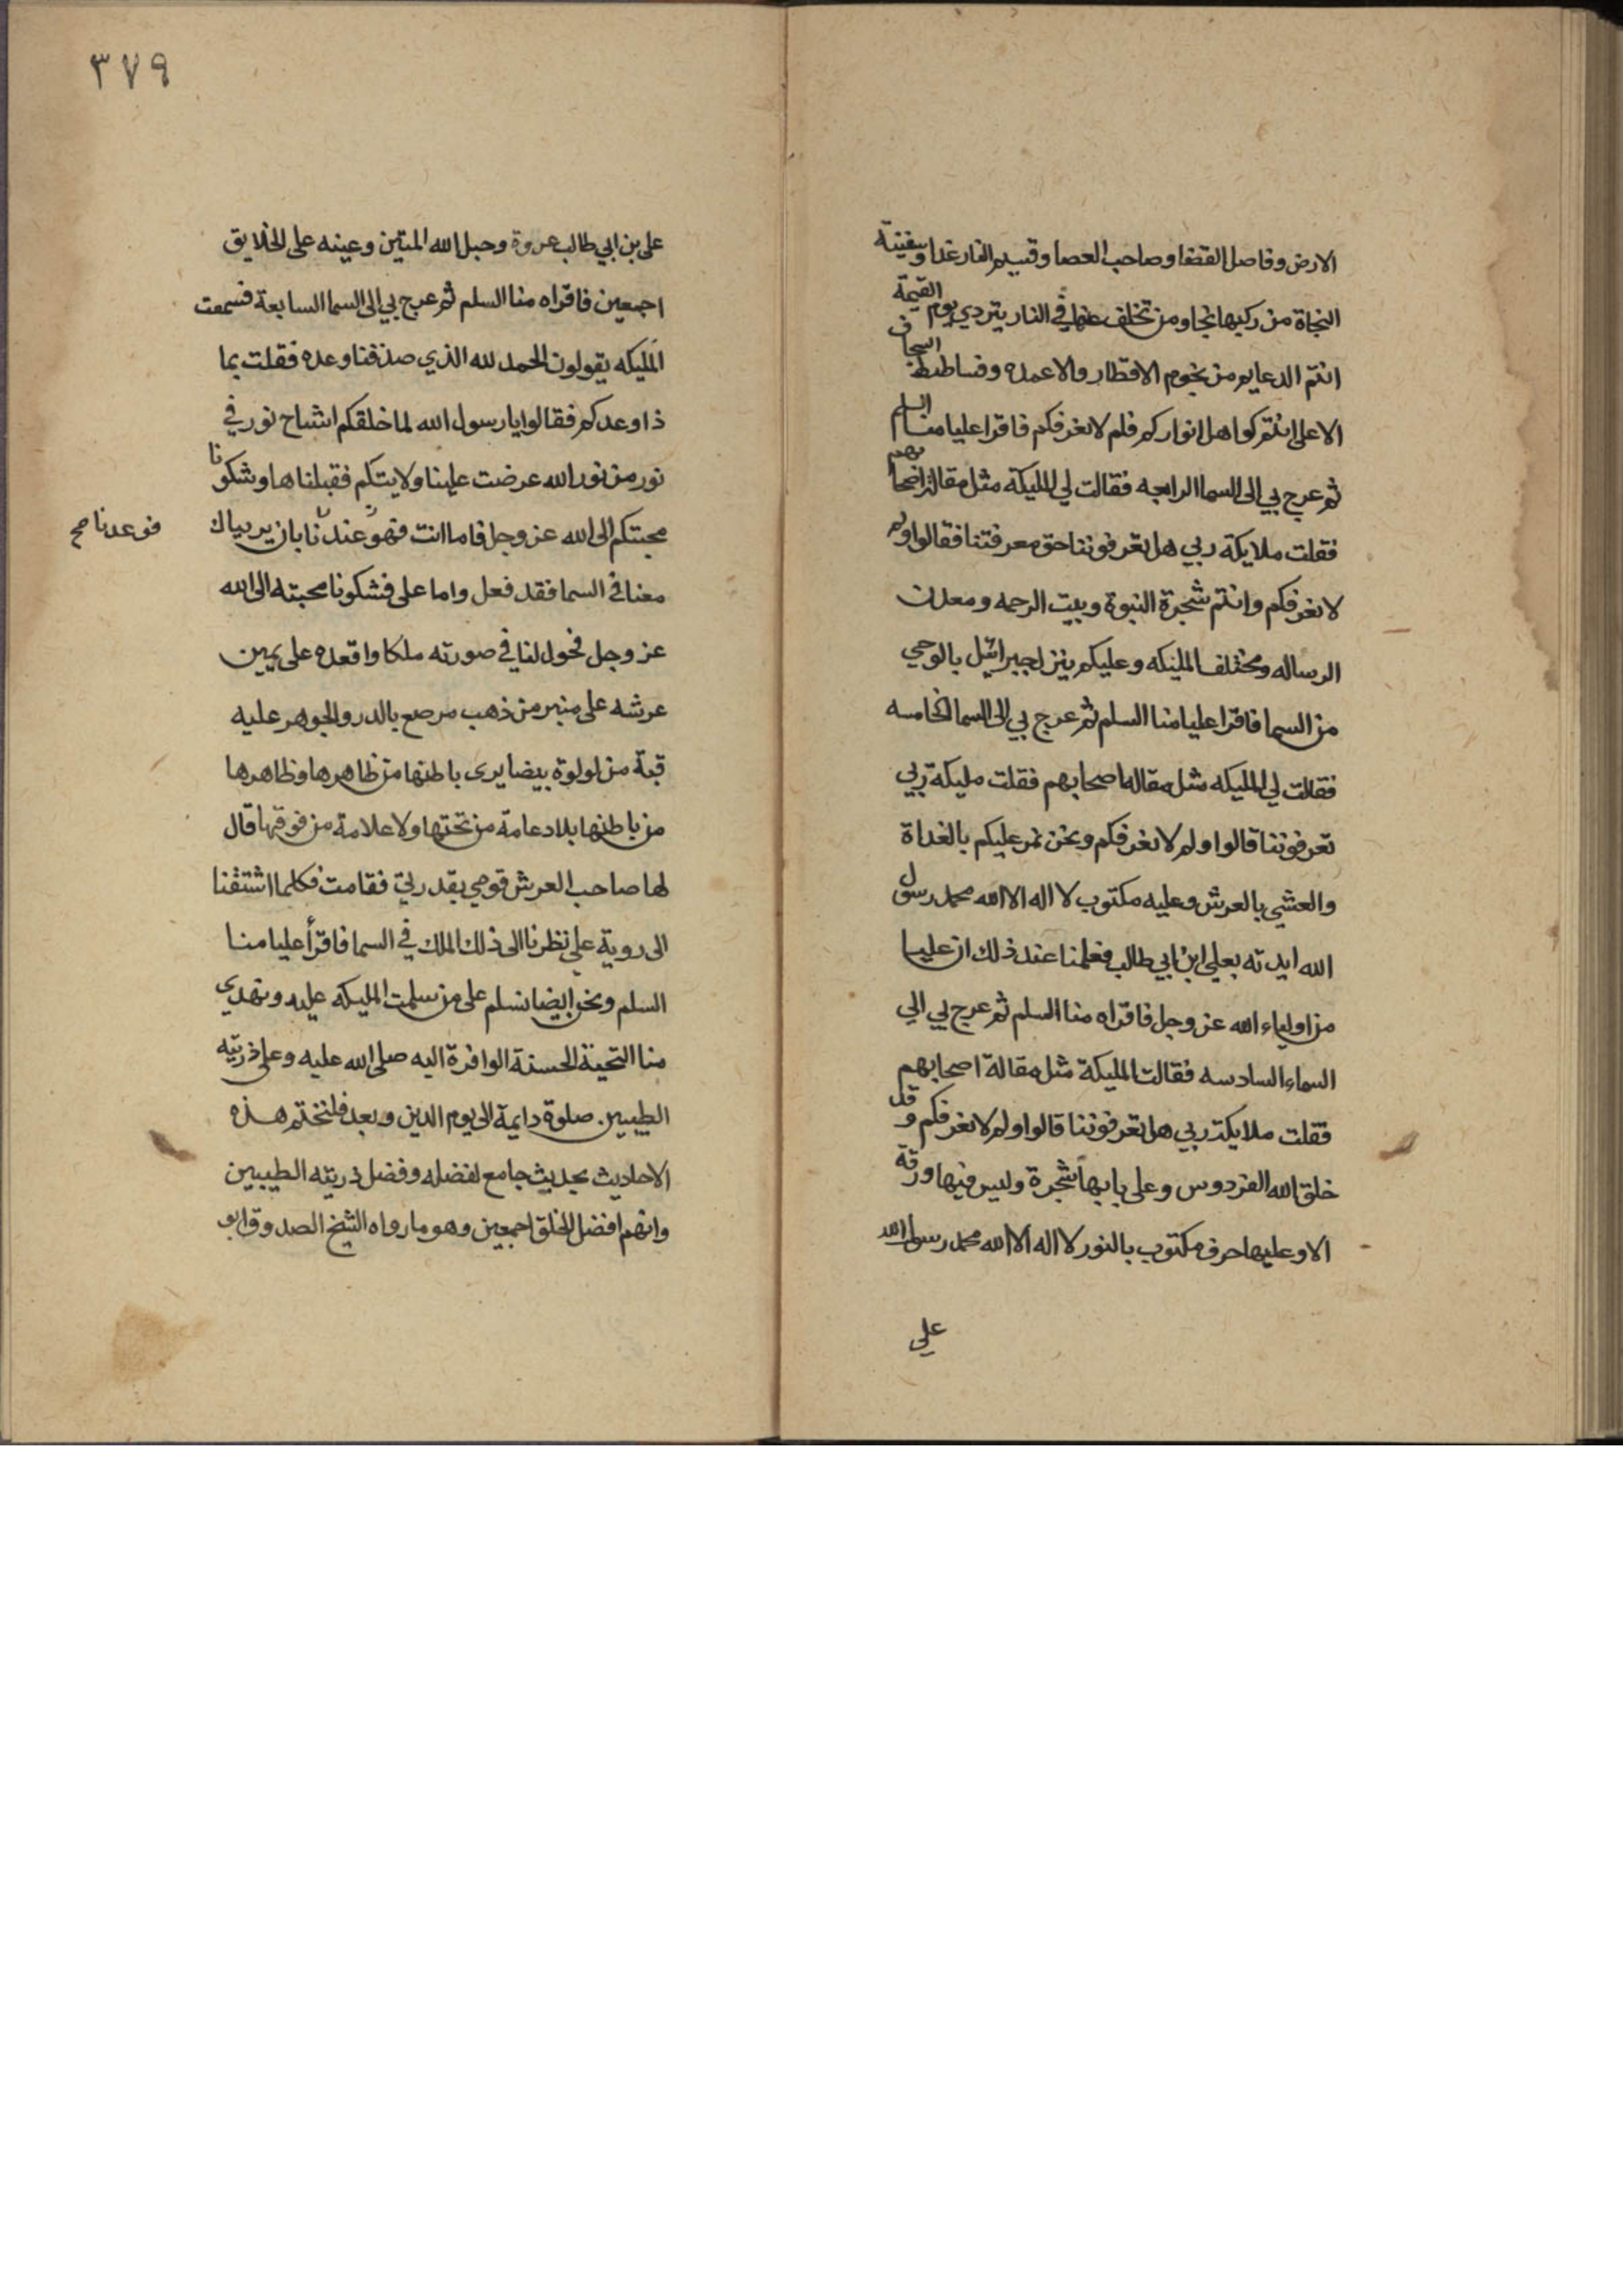 الارض وفاصل القضا وصاحب العصا وقسيم النار غدا وسفينة
النجاة من ركبها نجا ومن تخلف عنها في النار يتردي يوم القيمة
انتم الدعايم من نجوم الاقطار والاعمده وفساطيط السجاف
الاعلى انتم كواهل انواركم فلم لا نعرفكم فاقرا عليا منا السلم
ثم عرج بي الى السما الرابعه فقالت لي المليكة مثل مقالة اصحابهم
فقلت ملايكة ربي هل تعرفوننا حق معرفتنا فقالوا ولم
لا نعرفكم وانتم شجرة النبوة وبيت الرحمه ومعدن
الرساله ومختلف المليكه وعليكم ينزل جبرائيل بالوحي
من السما فاقرا عليا منا السلم ثم عرج بي الى السما الخامسه
فقالت لي المليكه مثل مقالة اصحابهم فقلت مليكة ربي
تعرفوننا قالوا ولم لا نعرفكم ونحن نمر عليكم بالغداة
والعشي بالعرش وعليه مكتوب لا اله الا الله محمد رسول
الله ايدته بعلي ابن ابي طالب فعلمنا عند ذلك ان عليا
من اولياء الله عز وجل فاقراه منا السلم ثم عرج بي الي
السماء السادسه فقالت المليكة مثل مقالة اصحابهم
فقلت ملايكة ربي هل تعرفوننا قالوا ولم لا نعرفكم وقد
خلق الله الفردوس وعلى بابها شجرة وليس فيها ورقة
الا وعليها حرف مكتوب بالنور لا اله الا الله محمد رسول الله
علي
٣٧٩
على بن ابي طالب عروة وحبل الله المتين وعينه على الخلايق
اجمعين فاقراه منا السلم ثم عرج بي الى السما السابعة فسمعت
المليكه يقولون الحمد لله الذي صدقنا وعده فقلت بما
ذا وعدكم فقالوا يا رسول الله لما خلقكم اشباح نور في
نور من نور الله عرضت علينا ولايتكم فقبلناها وشكونا
محبتكم الى الله عز وجل فاما انت فهو عندنا بان يريناك
فوعدنا صح
معنا في السما فقد فعل واما على فشكونا محبته الى الله
عز وجل فحول لنا في صورته ملكا واقعده على يمين
عرشه على منبر من ذهب مرصع بالدر والجوهر عليه
قبة من لولوة بيضا يرى باطنها من ظاهرها وظاهرها
من باطنها بلا دعامة من تحتها ولا علامة من فوقها قال
لها صاحب العرش قومي بقدرتي فقامت فكلما اشتقنا
الى روية علي نظرنا الى ذلك الملك في السما فاقرأ عليا منا
السلم ونحن ايضا نسلم على من سلمت المليكه عليه ونهدي
منا التحية الحسنة الوافرة اليه صلى الله عليه وعلى ذريته
الطيبين صلوة دايمة الى يوم الدين وبعد فلنختم هذه
الاحاديث بحديث جامع لفضله وفضل ذريته الطيبين
وانهم افضل الخلق اجمعين وهو ما رواه الشيخ الصدوق ابو